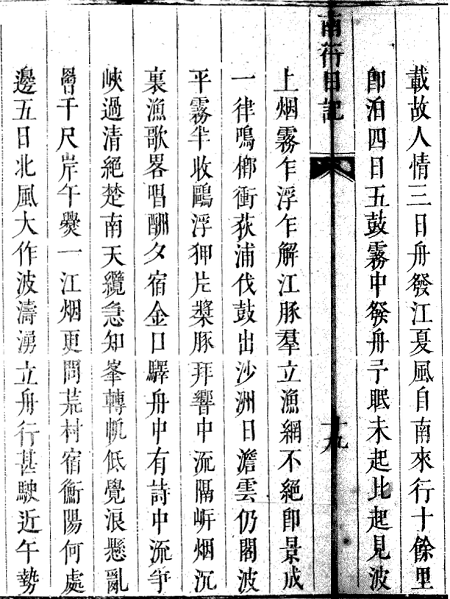 載故人情三日舟發江夏風自南來行十餘里
卽泊四日五鼓霧中發舟予眠未起比起見波
南行日記
十九
上烟霧乍浮乍解江豚羣立漁網不絕卽景成
一律鳴榔衝荻浦伐鼓出沙洲日澹雲仍閣波
平霧半收鷗浮狎片槳豚拜響中流隔岍烟沉
裏漁歌畧唱酬夕宿金口驛舟中有詩中流爭
峽過清絕楚南天纜急知峯轉帆低覺浪懸亂
罾千尺岸午爨一江烟更問荒村宿衡陽何處
邊五日北風大作波濤湧立舟行甚駛近午勢